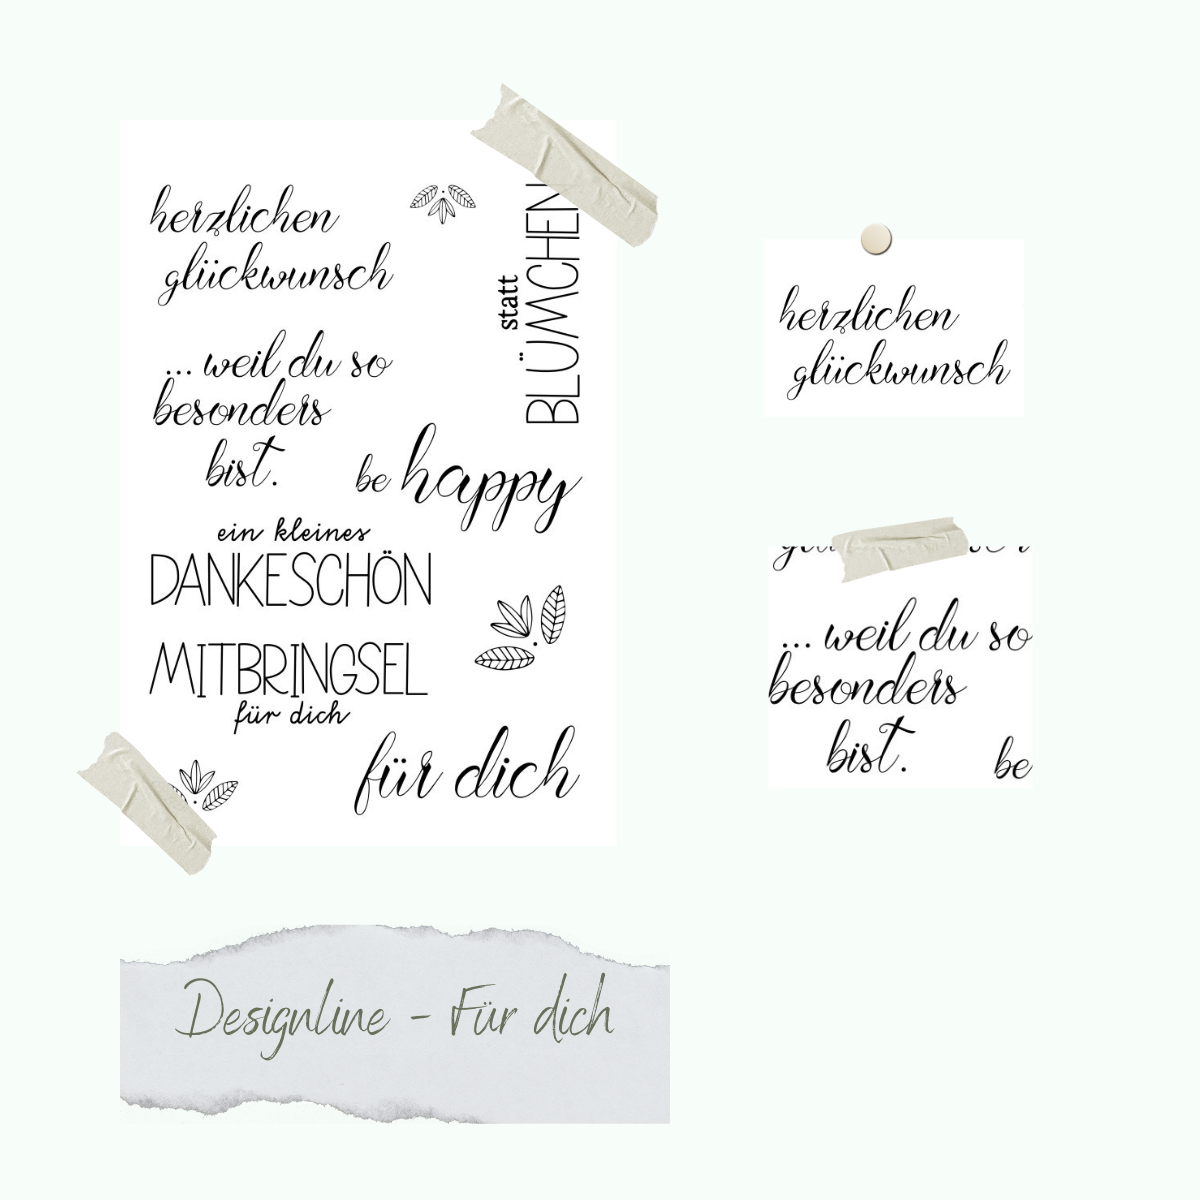 herzlichen
glückwunsch
statt
BLÜMCHEN
... weil du so
besonders
bist.
be happy
ein kleines
DANKESCHÖN
MITBRINGSEL
für dich
für dich
herzlichen
glückwunsch
... weil du so
besonders
bist.
be
Designline - Für dich